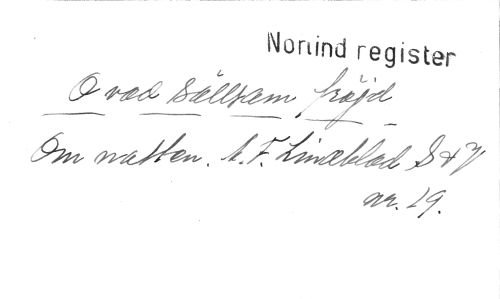 Norlind register
O vad sällsam fröjd
Om natten. A. F. Lindblad S & V
nr. 19.